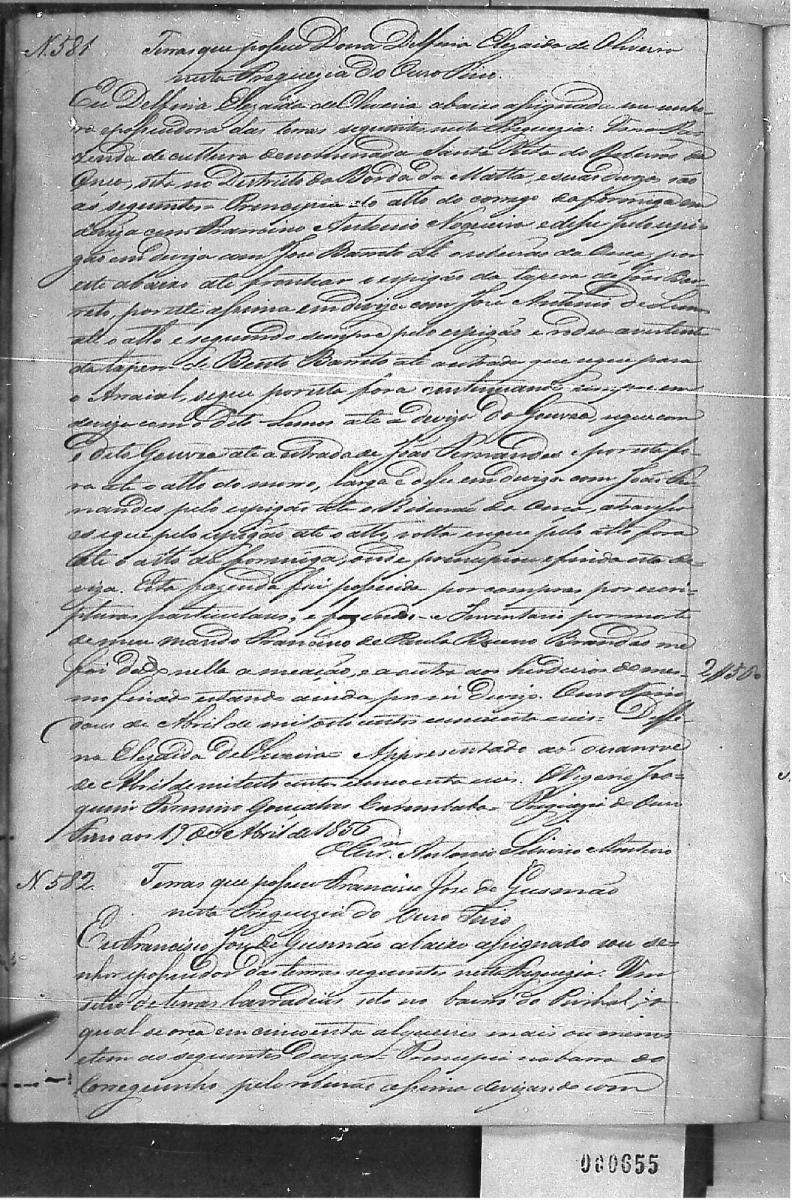 N. 581 Terras que possue Dona Delfina Elezaida de Oliveira
nesta Freguezia do Ouro Fino.
Eu Delfina Elezaida de Oliveira abaixo assignada sou senho-
ra e possuidora das terras seguintes nesta Freguezia: Uma Fa-
zenda de cultura denominada Santa Rita do Ribeirão da
Onça, sita no Districto da Borda da Matta, e suas divizas são
as seguintes = Principia do alto do corrego da formiga em
diviza com Francisco Antonio Nogueira e desse pelo espi-
gão em diviza com José Barreto até o ribeirão da Onça, por
este abaixo até frontiar o espigão da tapera de João Bar-
reto, por este assima em diviza com José Antonio de Lemos
até o alto e seguindo sempre pelo espigão e rodea a vertente
da tapera de Bento Barreto até a estrada que segue para
o Arraial, segue por esta fora continuando sempre em
diviza com o dito Lemos até a diviza do Gouvea, segue com
o dito Gouvea até a estrada de João Fernandes e por esta fo-
ra até o alto do morro, larga e desse em diviza com João Fer-
nandes pelo espigão até o Ribeirão da Onça, atravessa
e segue pelo espigão até o alto, volta e segue pelo alto fora
até o alto da formiga, onde principiou e finda esta di-
viza. Esta fazenda foi possuida por compras por escri-
pturas particulares, e fazendo-se Inventario por morte
de meu marido Francisco de Paula Bueno Brandão me
foi dado nella a meação, e a outra aos herdeiros do mes-
mo finado estando ainda por si diviza. Ouro Fino 2$580
dous de Abril de mil oito centos cincoenta e seis = Delfi-
na Elezaida de Oliveira = Appresentado aos desanove
de Abril de mil oito centos e cincoenta e seis. O Vigario Joa-
quim Firmino Gonçalves Curimbaba = Freguezia do Ouro
Fino aos 19 de Abril de 1856
O Escrm. Antonio Silvino Monteiro
N. 582 Terras que possue Francisco José de Gusmão
nesta Freguezia do Ouro Fino
Eu Francisco José de Gusmão abaixo assignado sou se-
nhor e possuidor das terras seguintes nesta Freguezia: Um
sitio de terras lavradias, sito no bairro do Pinhal, o
qual se orça em cincoenta alqueires mais ou menos
e tem as seguintes divizas = Principia na barra do
Correguinho pelo ribeirão assima devizando com
000655